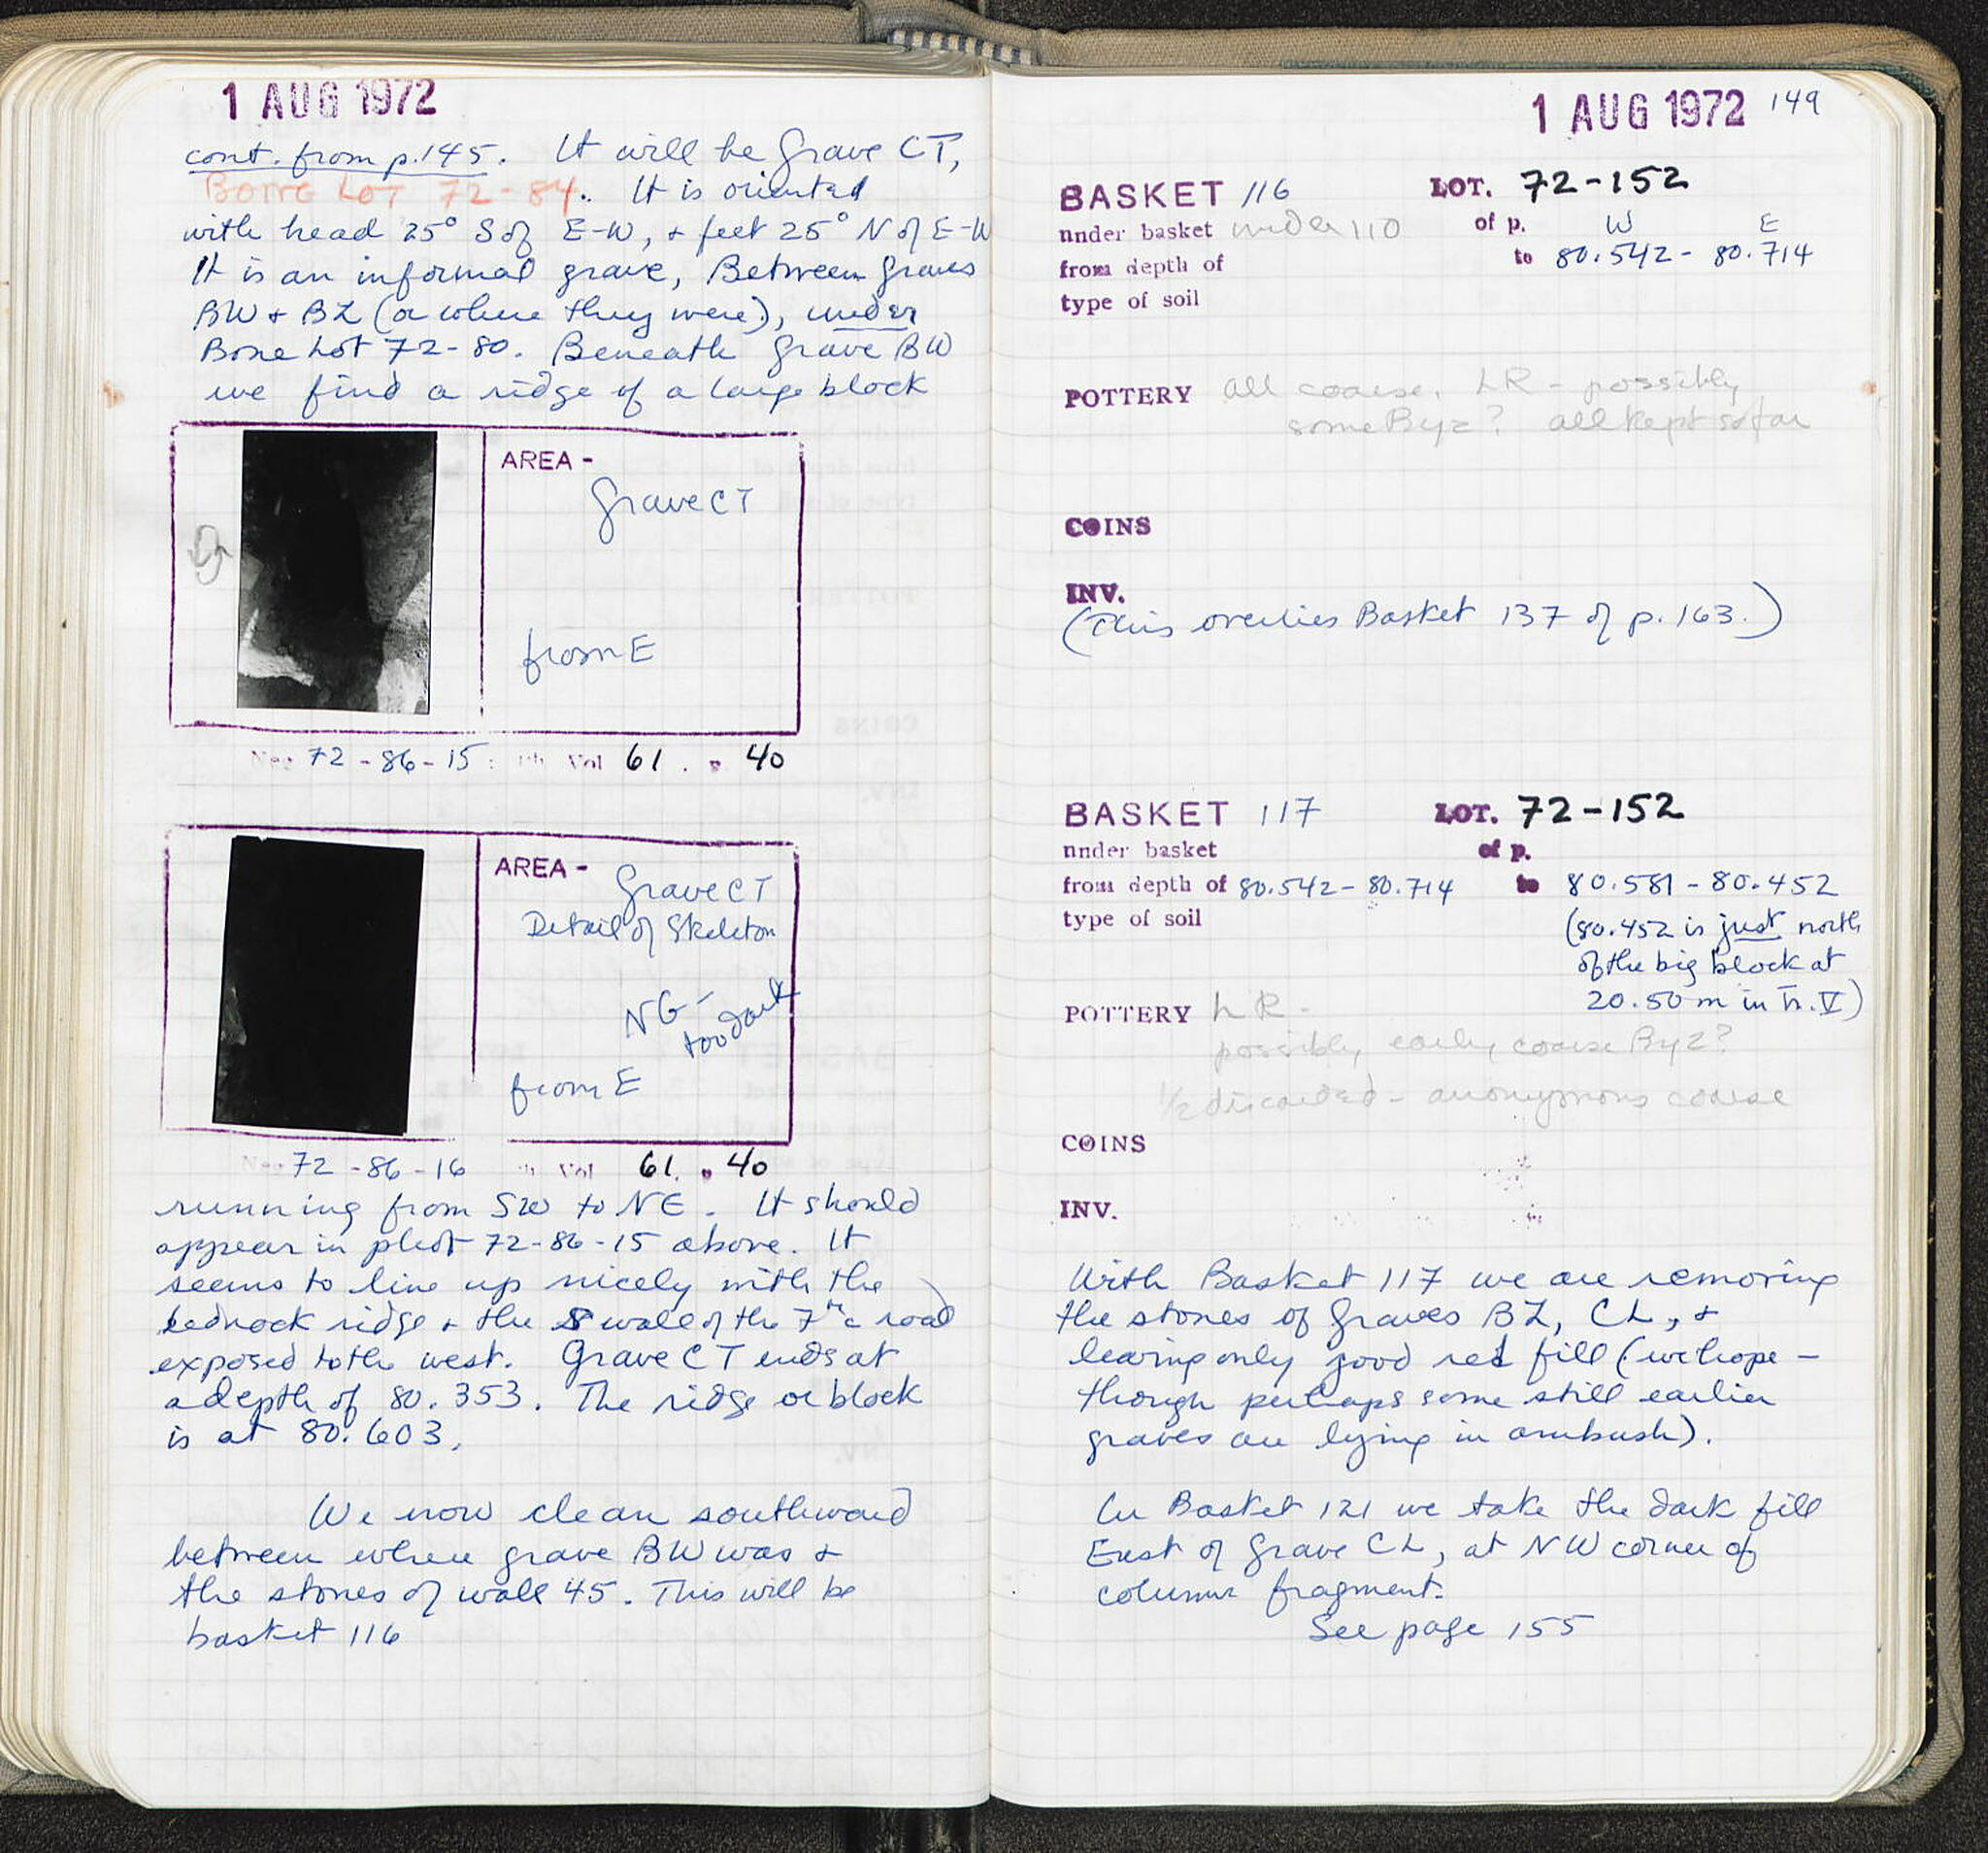 1 AUG 1972
cont. from p.145. It will be Grave CT,
BONE LOT 72-84. It is oriented
with head 25° S of E-W, + feet 25° N of E-W
It is an informal grave, Between Graves
BW + BZ (or where they were), under
Bone Lot 72-80. Beneath Grave BW
we find a ridge of a large block
AREA -
Grave CT
from E
Neg 72-86-15 Ph Vol 61. p 40
AREA -
Grave CT
Detail of Skeleton
NG -
too dark
from E
Neg 72-86-16 Ph Vol 61. p 40
running from SW to NE. It should
appear in phot 72-86-15 above. It
seems to line up nicely with the
bedrock ridge + the S wall of the 7th c road
exposed to the west. Grave CT ends at
a depth of 80.353. The ridge or block
is at 80.603.
We now clean southward
between where grave BW was +
the stones of wall 45. This will be
basket 116
1 AUG 1972 149
BASKET 116 LOT. 72-152
under basket under 110 of p. W E
from depth of to 80.542 - 80.714
type of soil
POTTERY all coarse. LR - possibly
some Byz? all kept so far
COINS
INV.
(This overlies Basket 137 of p. 163.)
BASKET 117 LOT. 72-152
under basket of p.
from depth of 80.542 - 80.714 to 80.581 - 80.452
type of soil (80.452 is just north
of the big block at
20.50 m in Tr. V)
POTTERY LR -
possibly early coarse Byz?
1/2 discarded - anonymous coarse
COINS
INV.
With Basket 117 we are removing
the stones of Graves BZ, CL, +
leaving only good red fill (we hope -
though perhaps some still earlier
graves are lying in ambush).
In Basket 121 we take the dark fill
East of Grave CL, at NW corner of
column fragment.
See page 155